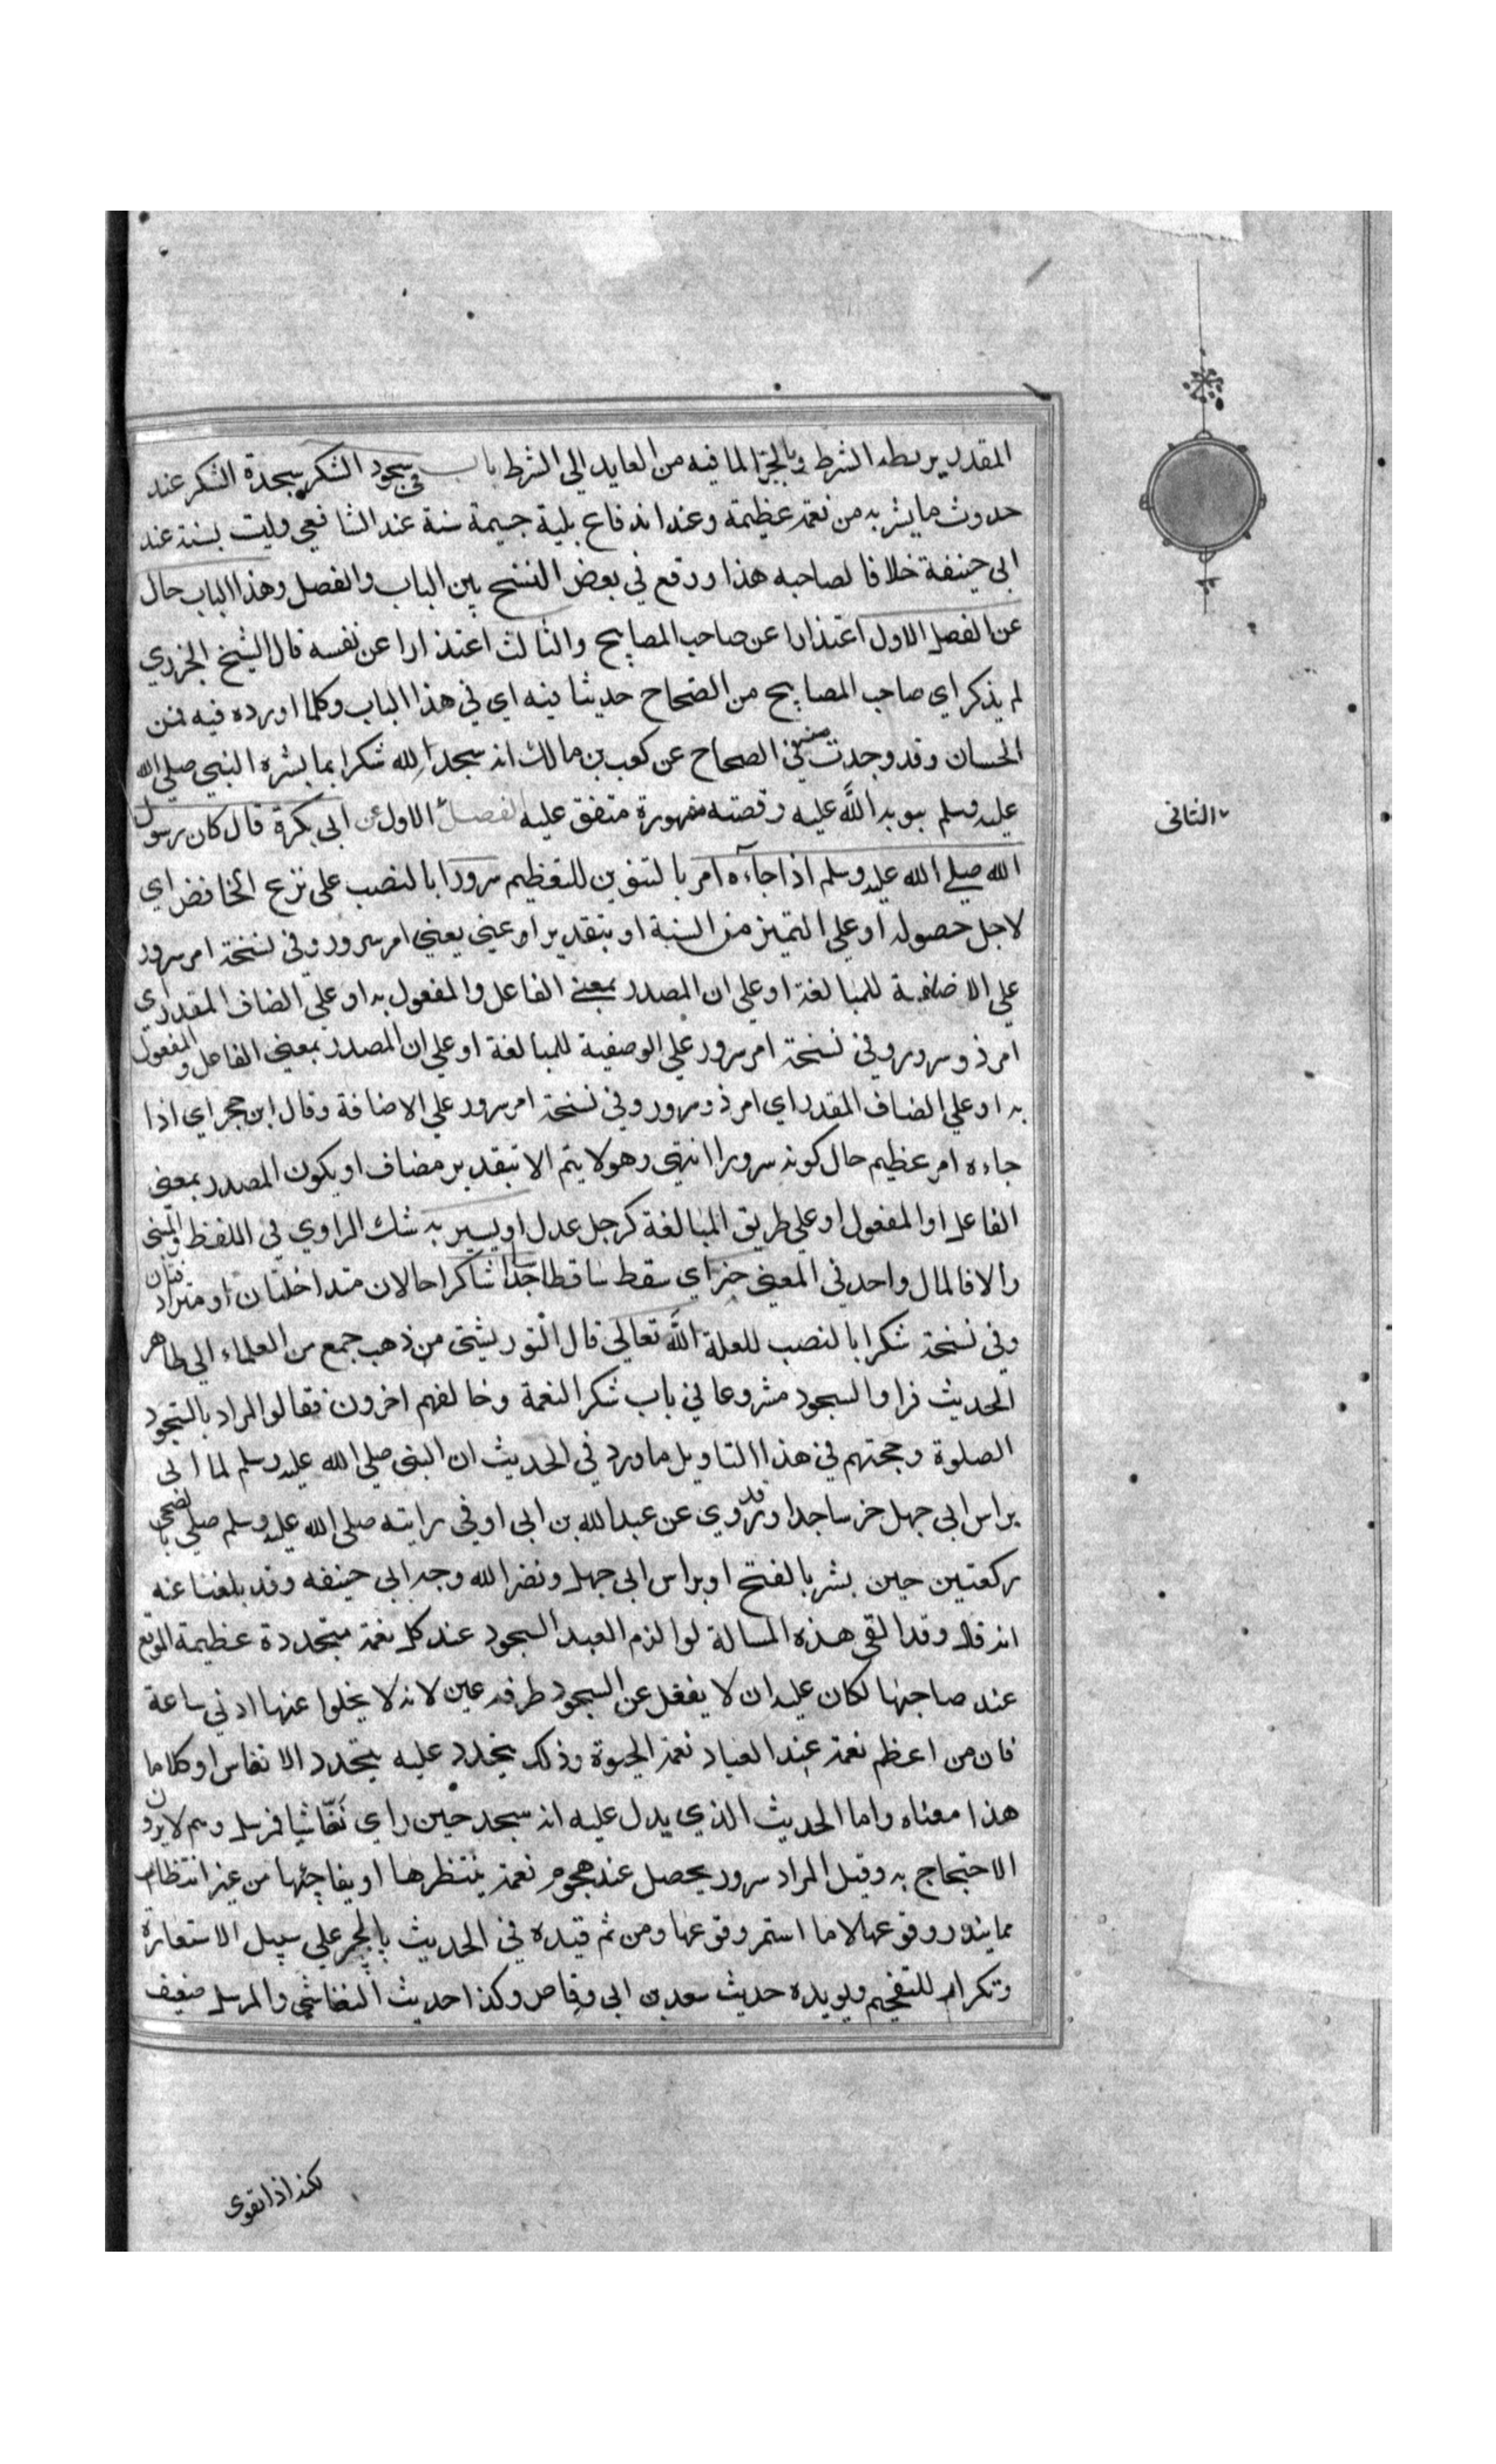 المقدر يربطه الشرط وبالجزا لما فيه من العايد الي الشرط باب في سجود الشكر سجدة الشكر عند
حدوث ما يبشر به من نعمة عظيمة وعند اندفاع بلية جسيمة سنة عند الشافعي وليت بسنة عند
ابي حنيفة خلافا لصاحبه هذا ووقع في بعض النسخ بين الباب والفصل وهذا الباب خال
عن الفصل الاول اعتذارا عن صاحب المصابيح والثالث اعتذارا عن نفسه قال الشيخ الجزري
لم يذكر اي صاحب المصابيح من الصحاح حديثا فيه اي في هذا الباب وكلما اورده فيه فمن
الحسان وقد وجدت في الصحاح عن كعب بن مالك انه سجد لله شكرا بما بشره النبي صلي الله
عليه وسلم بتوبة الله عليه وقصته مشهورة متفق عليه الفصل الاول عن ابي بكرة قال كان رسول
الثاني
الله صلي الله عليه وسلم اذا جاءه امر بالتنوين للتعظيم سرورا بالنصب علي نزع الخافض اي
لاجل حصوله او علي التميز من النسبة او بتقدير اعني يعني امر سرور وفي نسخة امر سرور
علي الاضافية للمبالغة او علي ان المصدر بمعني الفاعل والمفعول به او علي المضاف المقدر اي
امر ذو سرور وفي نسخة امر سرور علي الوصفية للمبالغة او علي ان المصدر بمعني الفاعل والمفعول
به او علي المضاف المقدر اي امر ذو سرور وفي نسخة امر سرور علي الاضافة وقال ابن حجر اي اذا
جاءه امر عظيم حال كونه سرورا انتهي وهو لا يتم الا بتقدير مضاف او يكون المصدر بمعني
الفاعل او المفعول او علي طريق المبالغة كرجل عدل او يسير به شك الراوي في اللفظ والمبني
والا فالمال واحد في المعني خر اي سقط ساقطا ساجدا شاكرا حالان متداخلتان او مترادفتان
وفي نسخة شكرا بالنصب للعلة الله تعالي قال التوربشتي من ذهب جمع من العلماء الي ظاهر
الحديث فراوا السجود مشروعا في باب شكر النعمة وخالفهم اخرون فقالوا المراد بالسجود
الصلوة وحجتهم في هذا التاويل ما ورد في الحديث ان النبي صلي الله عليه وسلم لما اتي
براس ابي جهل خر ساجدا وقد روي عن عبد الله بن ابي اوفي رايته صلي الله عليه وسلم صلي بالضحي
ركعتين حين بشر بالفتح او براس ابي جهل ونضر الله وجه ابي حنيفة وقد بلغنا عنه
انه قال وقد القي هذه المسالة لو الزم العبد السجود عند كل نعمة متجددة عظيمة الموقع
عند صاحبها لكان عليه ان لا يغفل عن السجود طرفة عين لانه لا يخلوا عنها ادني ساعة
فان من اعظم نعمة عند العباد نعمة الحيوة وذلك يتجدد عليه بتجدد الانفاس او كلاما
هذا معناه واما الحديث الذي يدل عليه انه سجد حين راي نغاشيا فمرسل وهم لا يرون
الاحتجاج به وقيل المراد سرور يحصل عند هجوم نعمة ينتظرها او يفاجئها من غير انتظار
مما يندر وقوعها لا ما استمر وقوعها ومن ثم قيده في الحديث بالمجر علي سبيل الاستعارة
وتكرام للتفخيم ويويده حديث سعد بن ابي وقاص وكذا حديث النغاشي والمرسل ضعيف
لكنه اذا تقوي